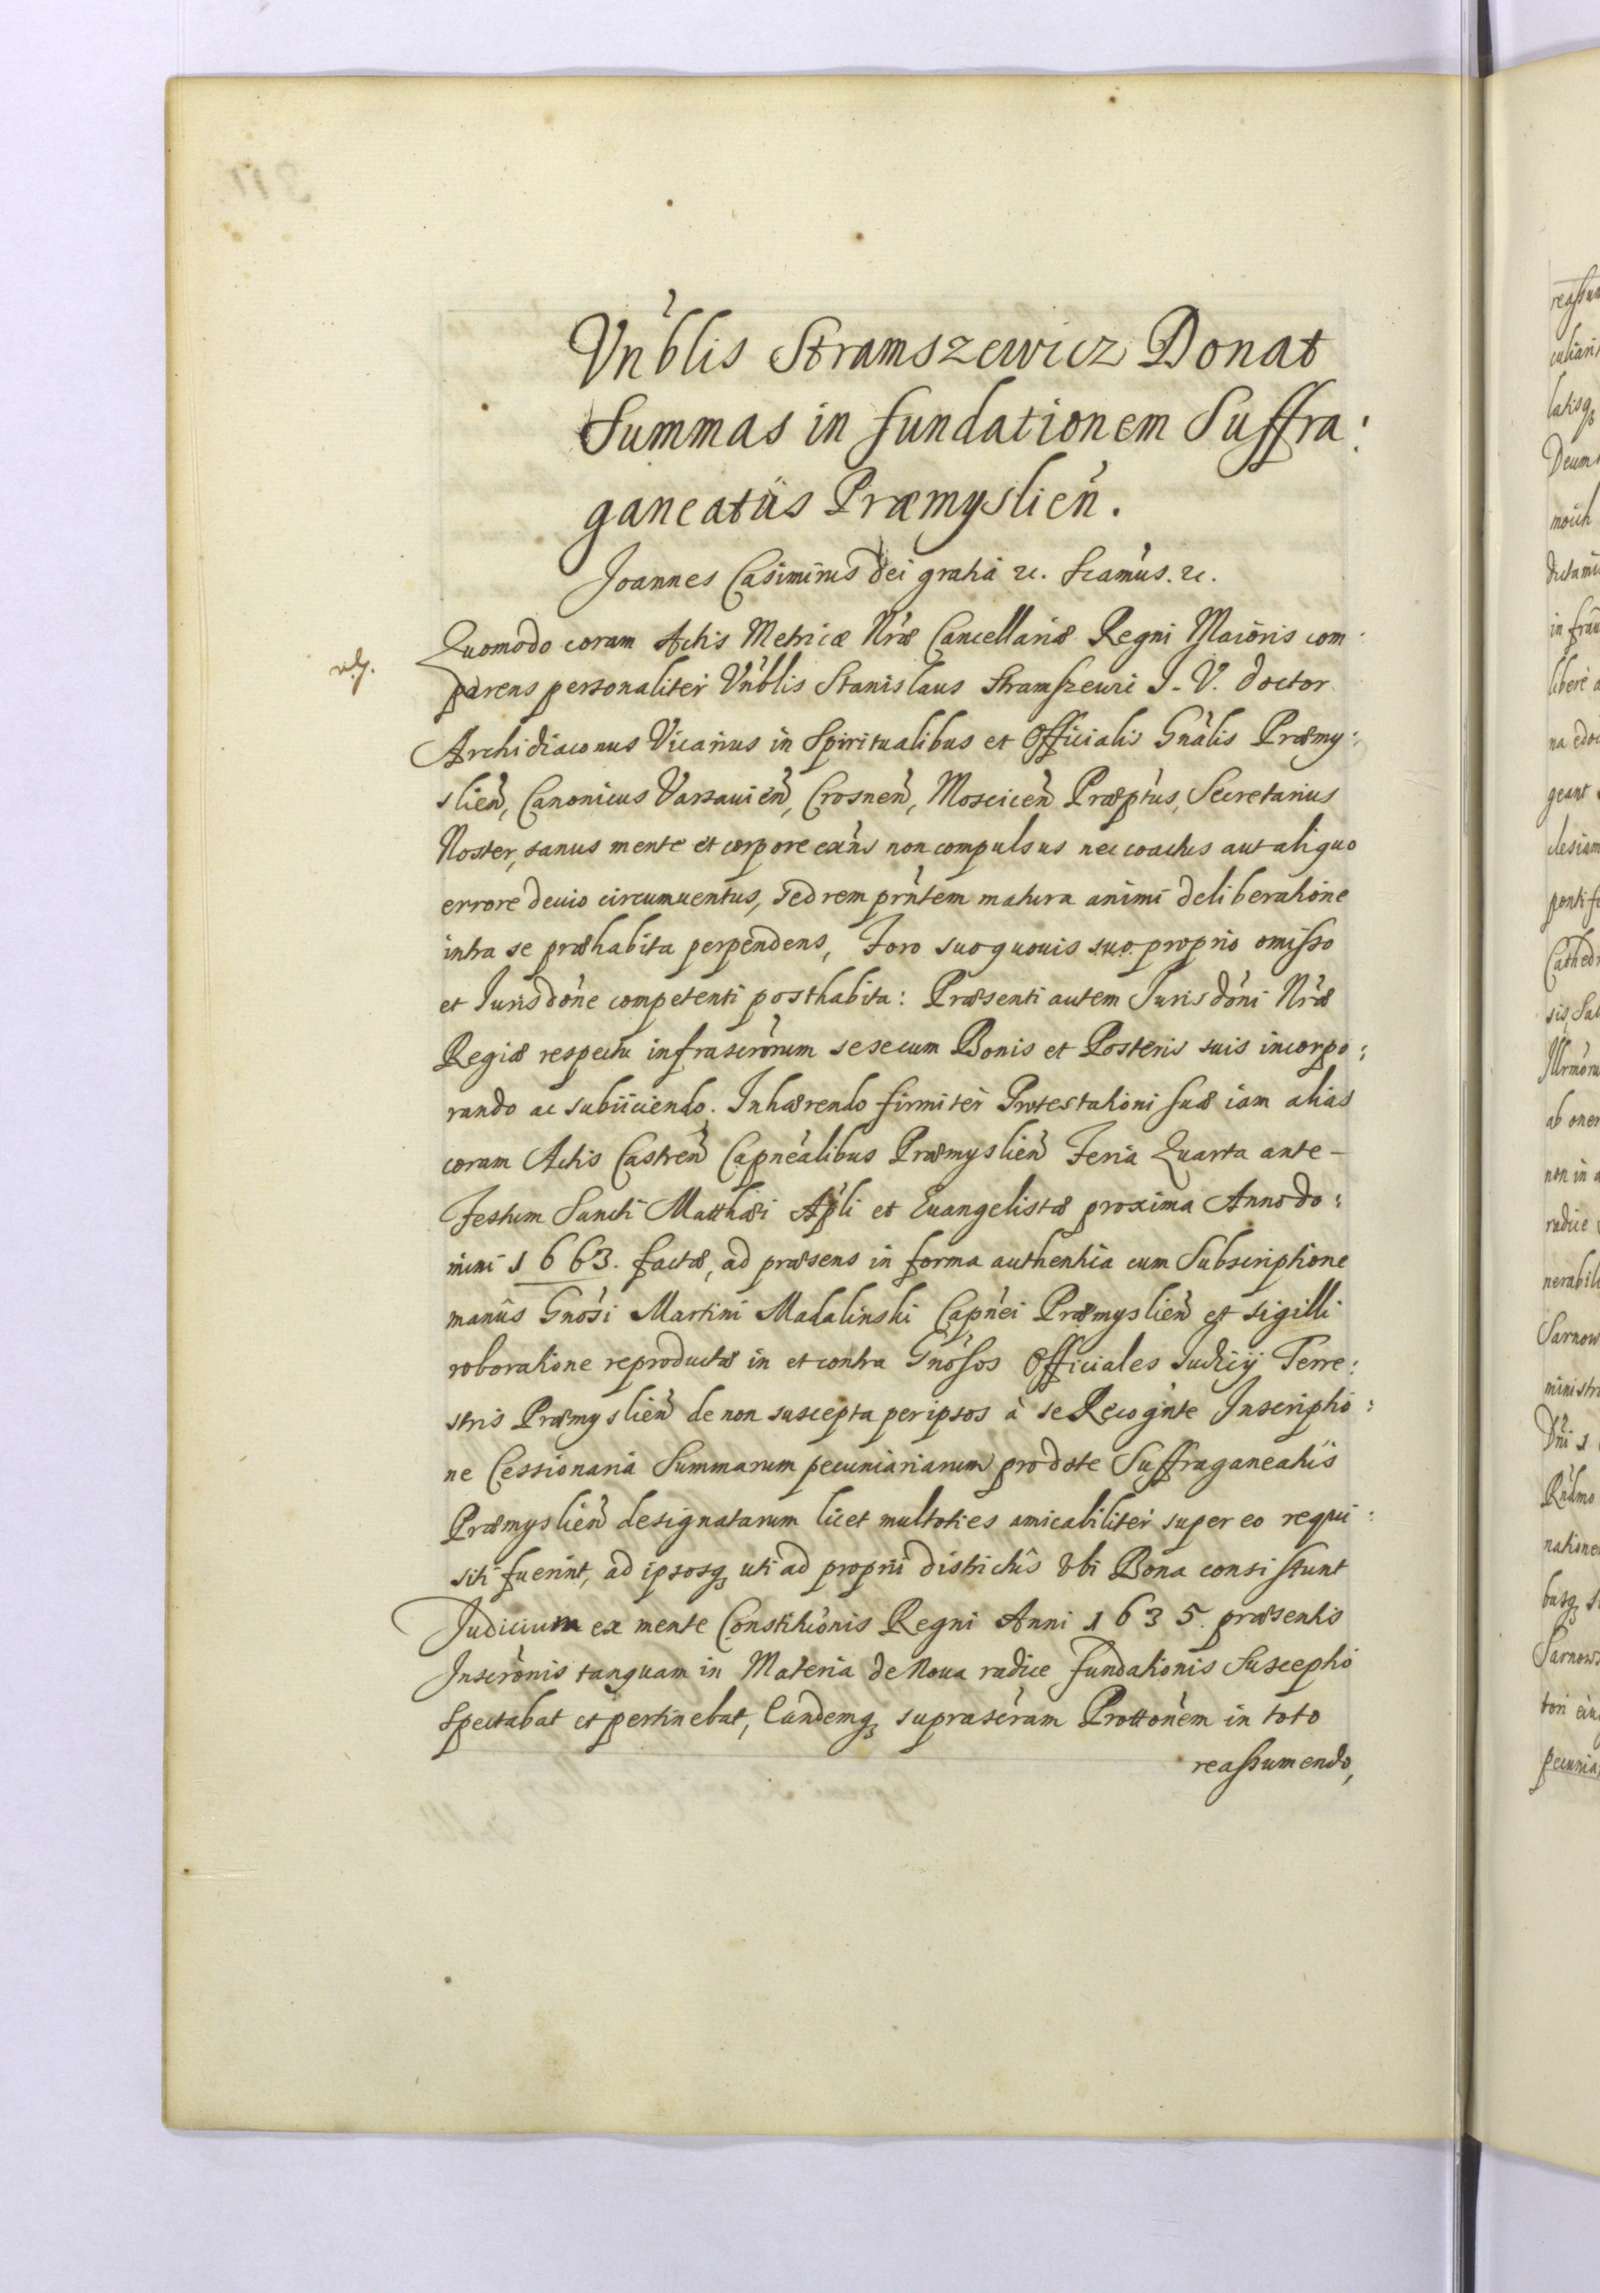 Vn̄blis Stramszewicz Donat
Summas in fundationem Suffra:
ganeatûs Præmyslien̄.
Joannes Casimirus dei gratiâ &c. Scamūs. &c.
Quomodo coram Actis Metricæ Nr̄æ Cancellariæ Regni Maioris com:
parens personaliter Vn̄blis Stanislaus Stramszewic J. V. doctor
Archidiaconus Vicarius in Spiritualibus et Officialis Gn̄alis Præmy:
slien̄, Canonicus Varsauien̄, Crosnen̄, Moscicen̄ Præptūs, Secretarius
Noster, sanus mente et corpore exn̄s non compulsus nec coactus aut aliquo
errore deuio circumuentus, sed rem prn̄tem matura animi deliberatione
intra se præhabita perpendens, Foro suo quouis suo proprio omisso
et Jurisdōne competenti posthabita: Præsenti autem Jurisdōni Nr̄æ
Regiæ respectu infrascrōrum sese cum Bonis et Posteris suis incorpo:
rando ac subiiciendo. Inhærendo firmiter Protestationi suæ iam alias
coram Actis Castren̄ Capn̄ealibus Præmyslien̄ Feria Quarta ante-
Festum Sancti Matthæi Ap̄li et Euangelistæ proxima Anno do:
mini 1663. factæ, ad præsens in forma authentica cum Subscriptione
manûs Gnōsi Martini Madalinski Capn̄ei Præmyslien̄ et sigilli
roboratione reproductæ in et contra Gnōsos Officiales Judicij Terre:
stris Præmyslien̄ de non suscepta per ipsos à se Recogn̄te Inscriptio:
ne Cessionaria Summarum pecuniariarum pro dote Suffraganeatûs
Præmyslien̄ designatarum licet multoties amicabiliter super eo requi:
siti fuerint, ad ipsosq; uti ad proprii districtûs vbi Bona consistunt
Judicium ex mente Constitiōnis Regni Anni 1635. præsentis
Inscrōnis tanquam in Materia de Noua radice fundationis Susceptio
spectabat et pertinebat, Eandemq; suprascr̄am Prottōnem in toto
reassumendo,